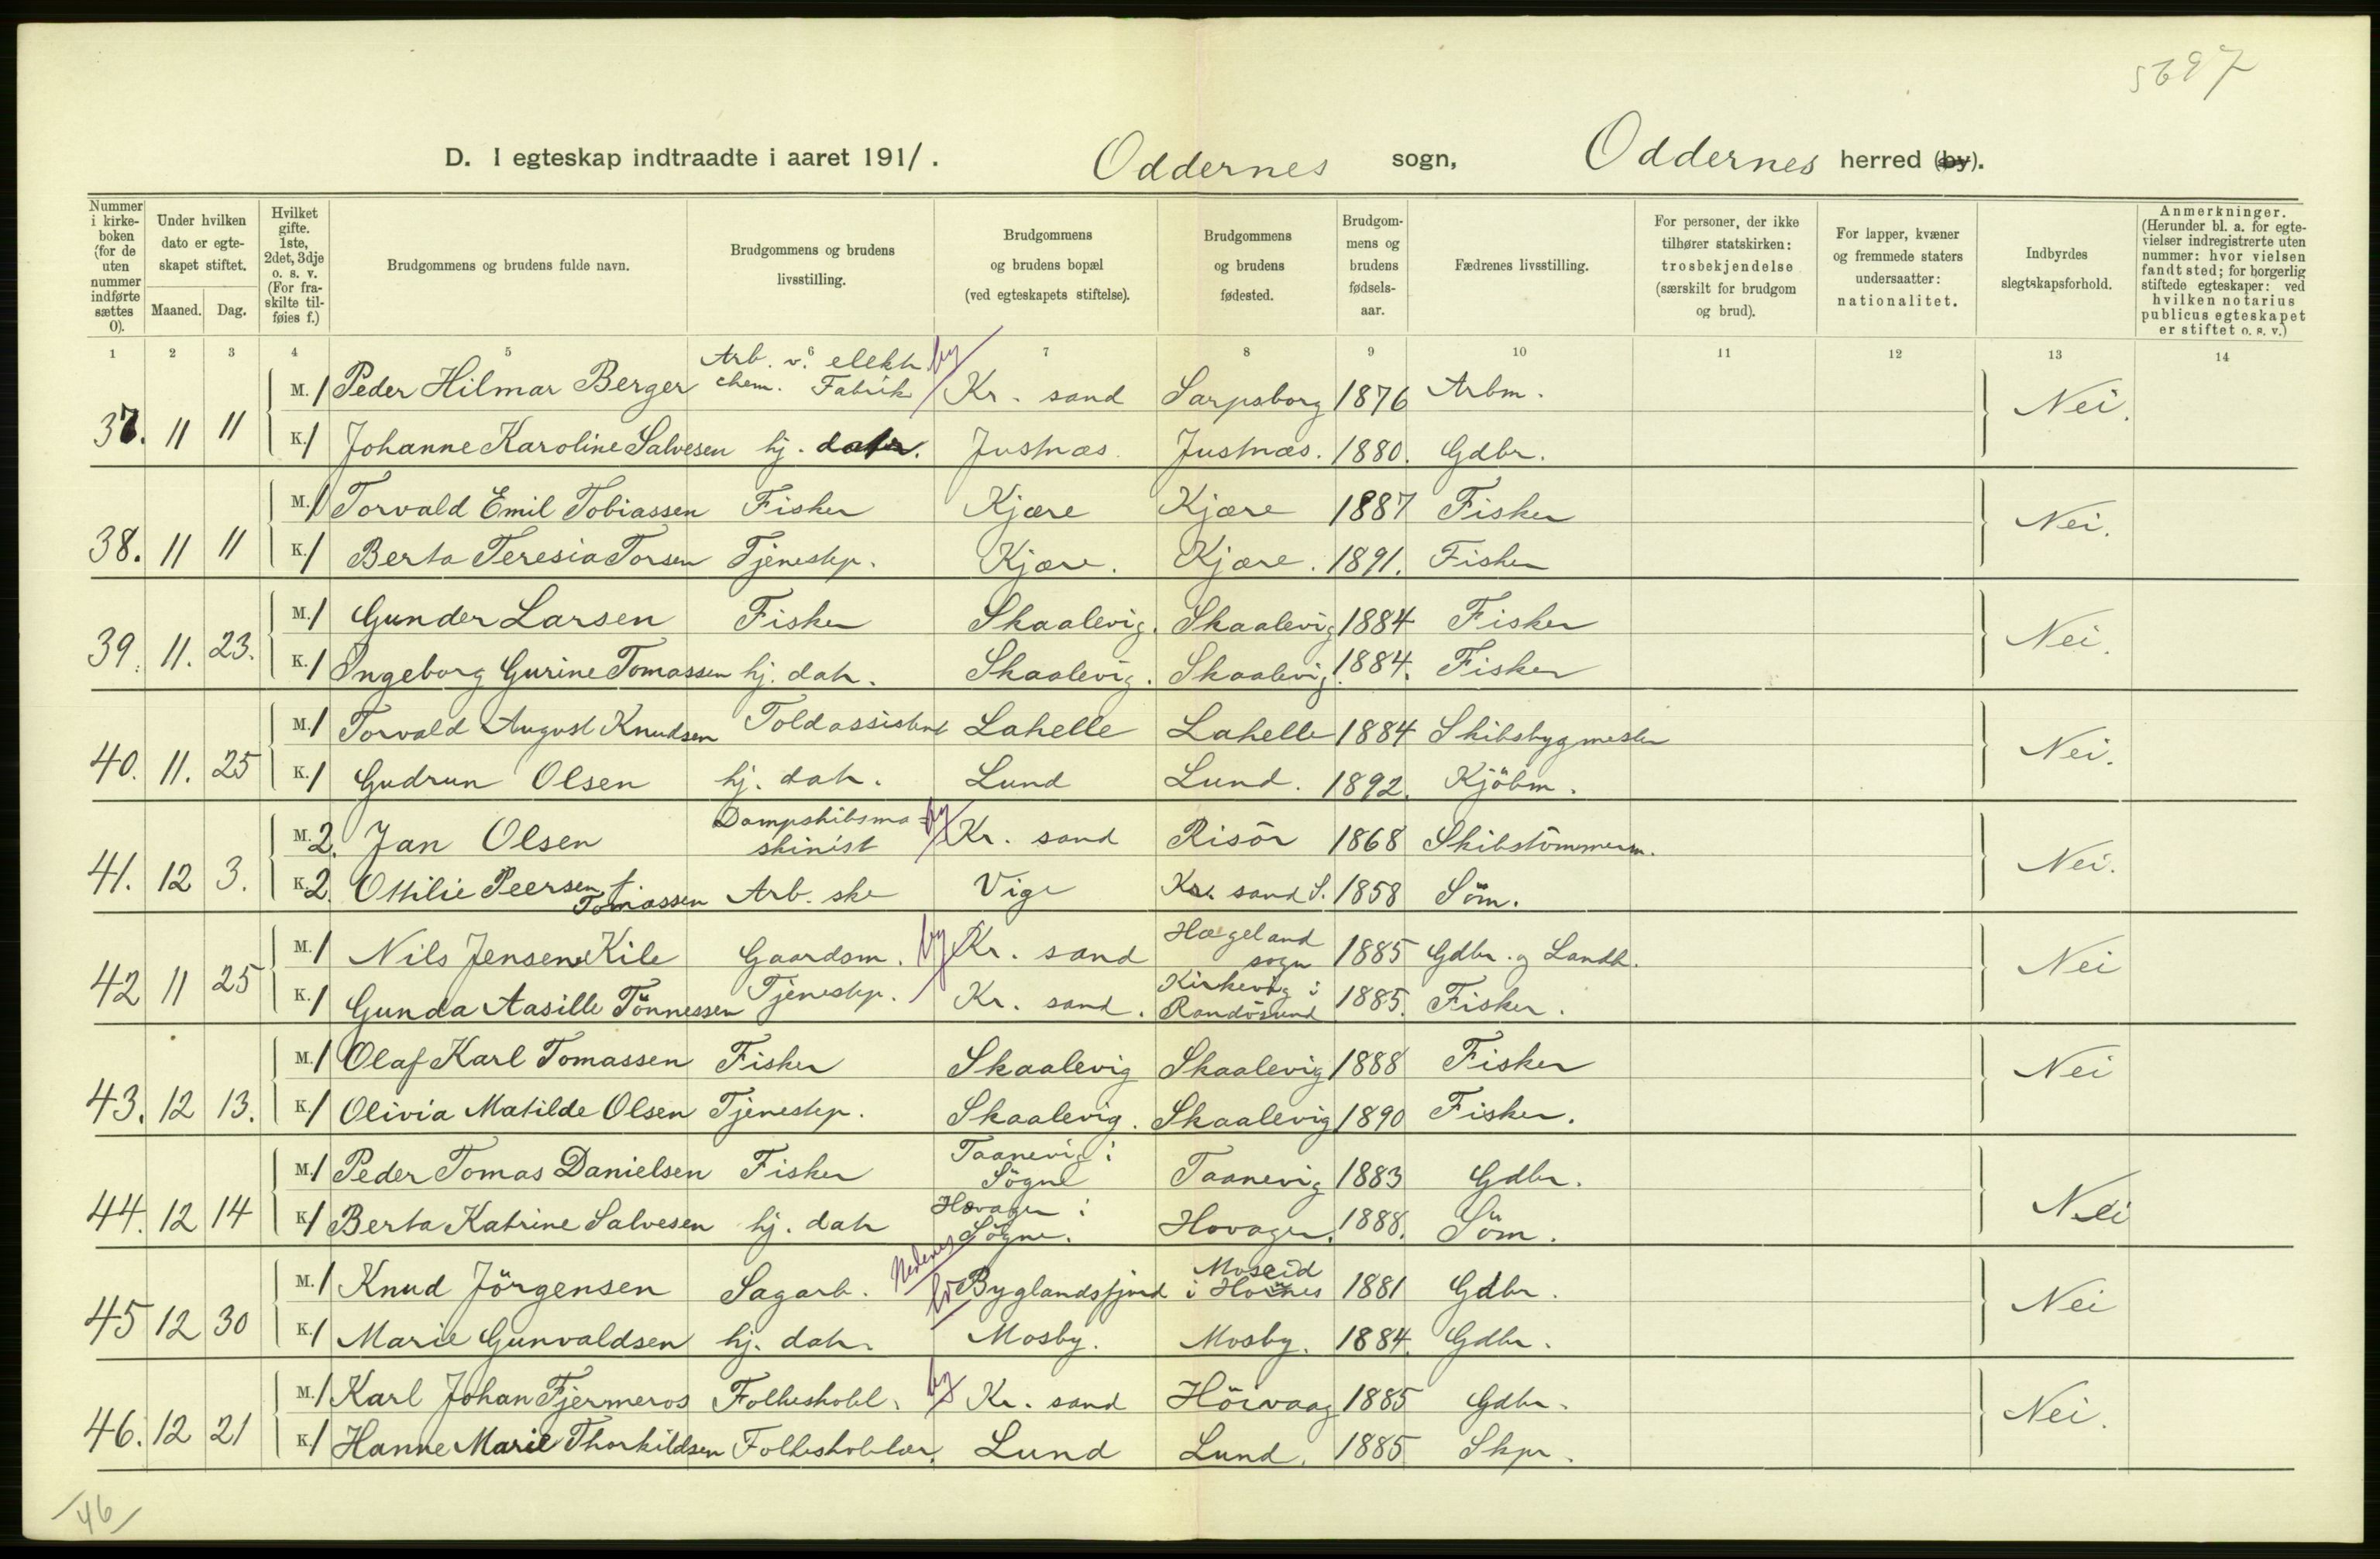 5697
D. I egteskap indtraadte i aaret 1911. Oddernes sogn, Oddernes herred (by).
Nummer i kirke-boken (for de uten nummer indførte sættes 0).
Under hvilken dato er egte-skapet stiftet.
Maaned. Dag.
Hvilket gifte. 1ste, 2det, 3dje o. s. v. (For fra-skilte til-føies f.)
Brudgommens og brudens fulde navn.
Brudgommens og brudens livsstilling.
Brudgommens og brudens bopæl (ved egteskapets stiftelse).
Brudgommens og brudens fødested.
Brudgom-mens og brudens fødsels-aar.
Fædrenes livsstilling.
For personer, der ikke tilhører statskirken: trosbekjendelse (særskilt for brudgom og brud).
For lapper, kvæner og fremmede staters undersaatter: nationalitet.
Indbyrdes slegtskapsforhold.
Anmerkninger. (Herunder bl. a. for egte-vielser indregistrerte uten nummer: hvor vielsen fandt sted; for borgerlig stiftede egteskaper: ved hvilken notarius publicus egteskapet er stiftet o. s. v.)
1 2 3 4 5 6 7 8 9 10 11 12 13 14
37. 11 11 M. 1 Peder Hilmar Berger Arb. v. elektr. chem. Fabrik by Kr. sand Sarpsborg 1876 Arbm. Nei.
K. 1 Johanne Karoline Salvesen hj. datr. Justnæs. Justnæs. 1880. Gdbr.
38. 11 11 M. 1 Torvald Emil Tobiassen Fisker Kjære Kjære 1887 Fisker Nei.
K. 1 Berta Teresia Torsen Tjenestep. Kjære. Kjære. 1891. Fisker
39. 11. 23. M. 1 Gunder Larsen Fisker Skaalevig. Skaalevig 1884 Fisker Nei.
K. 1 Ingeborg Gurine Tomassen hj. datr. Skaalevig. Skaalevig. 1884. Fisker
40. 11. 25 M. 1 Torvald August Knudsen Toldassistent Lahelle Lahelle 1884 Skibsbygmester Nei.
K. 1 Gudrun Olsen hj. datr. Lund Lund. 1892. Kjöbm.
41. 12 3. M. 2. Jan Olsen Dampskibsma=skinist by Kr. sand Risör 1868 Skibstömmerm. Nei.
K. 2. Ottilie Peersen f. Tomassen Arb. ske Vige Kr. sand S. 1858 Söm.
42 11 25 M. 1 Nils Jensen Kile Gaardsm. by Kr. sand Hægeland sogn 1885 Gdbr. og Landh. Nei
K. 1 Gunda Aasille Tönnessen Tjenestep. Kr. sand. Kirkevig i Randösund 1885. Fisker.
43. 12 13. M. 1 Olaf Karl Tomassen Fisker Skaalevig Skaalevig 1888 Fisker Nei
K. 1 Olivia Matilde Olsen Tjenestep. Skaalevig. Skaalevig 1890 Fisker.
44. 12 14 M. 1 Peder Tomas Danielsen Fisker Taanevig i Sögne Taanevig 1883 Gdbr. Nei
K. 1 Berta Katrine Salvesen hj. datr Hovagen i Sögne. Hovagen. 1888. Söm.
45 12 30 M. 1 Knud Jörgensen Sagarb. Nedenes Byglandsfjord Moseid i Hornes 1881 Gdbr. Nei
K. 1 Marie Gunvaldsen hj. datr. Mosby. Mosby. 1884. Gdbr.
46. 12 21 M. 1 Karl Johan Fjermeros Folkeskolel. by Kr. sand Höivaag 1885 Gdbr. Nei.
K. 1 Hanne Marie Thorkildsen Folkeskolelær. Lund Lund. 1885 Skpr.
46